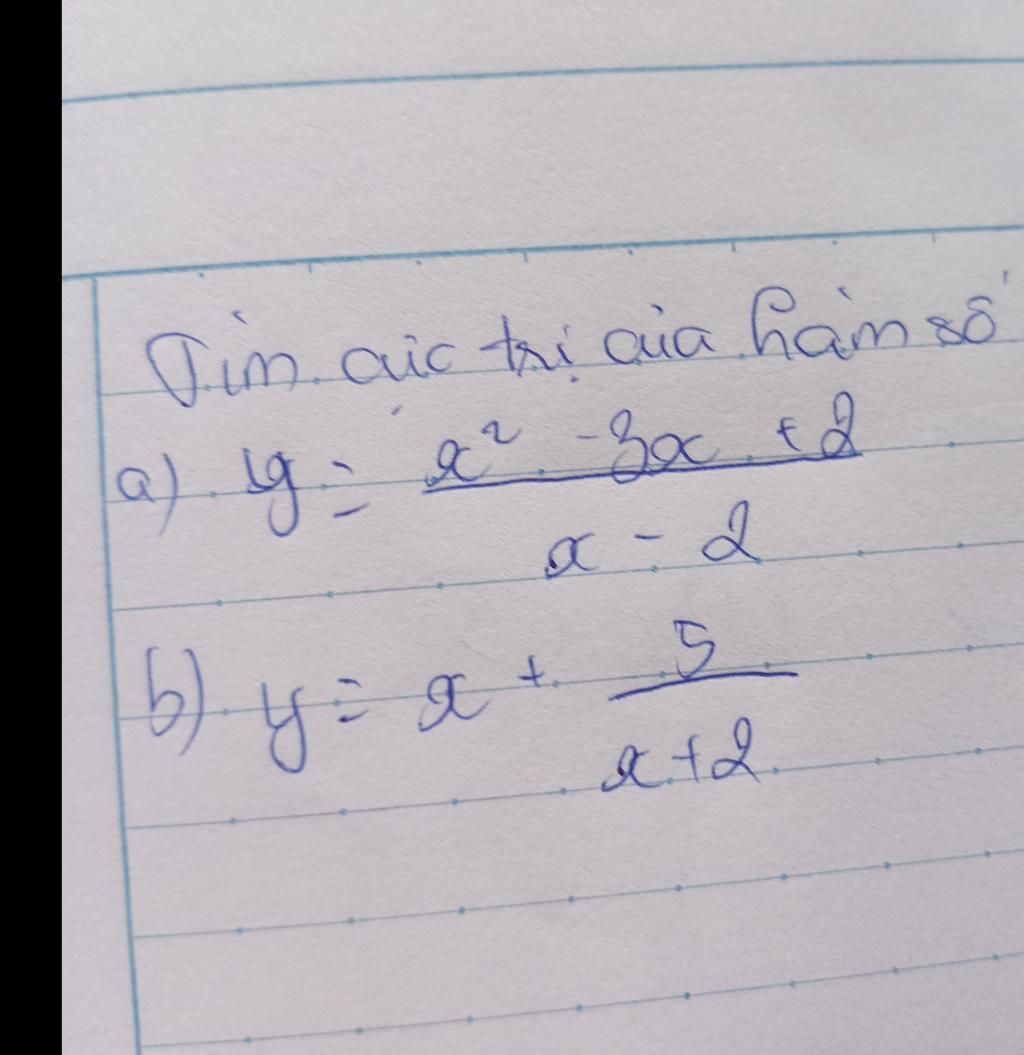 Tìm cực trị của hàm số
a) y = x² - 3x + 2 / x - 2
b) y = x + 5 / x + 2